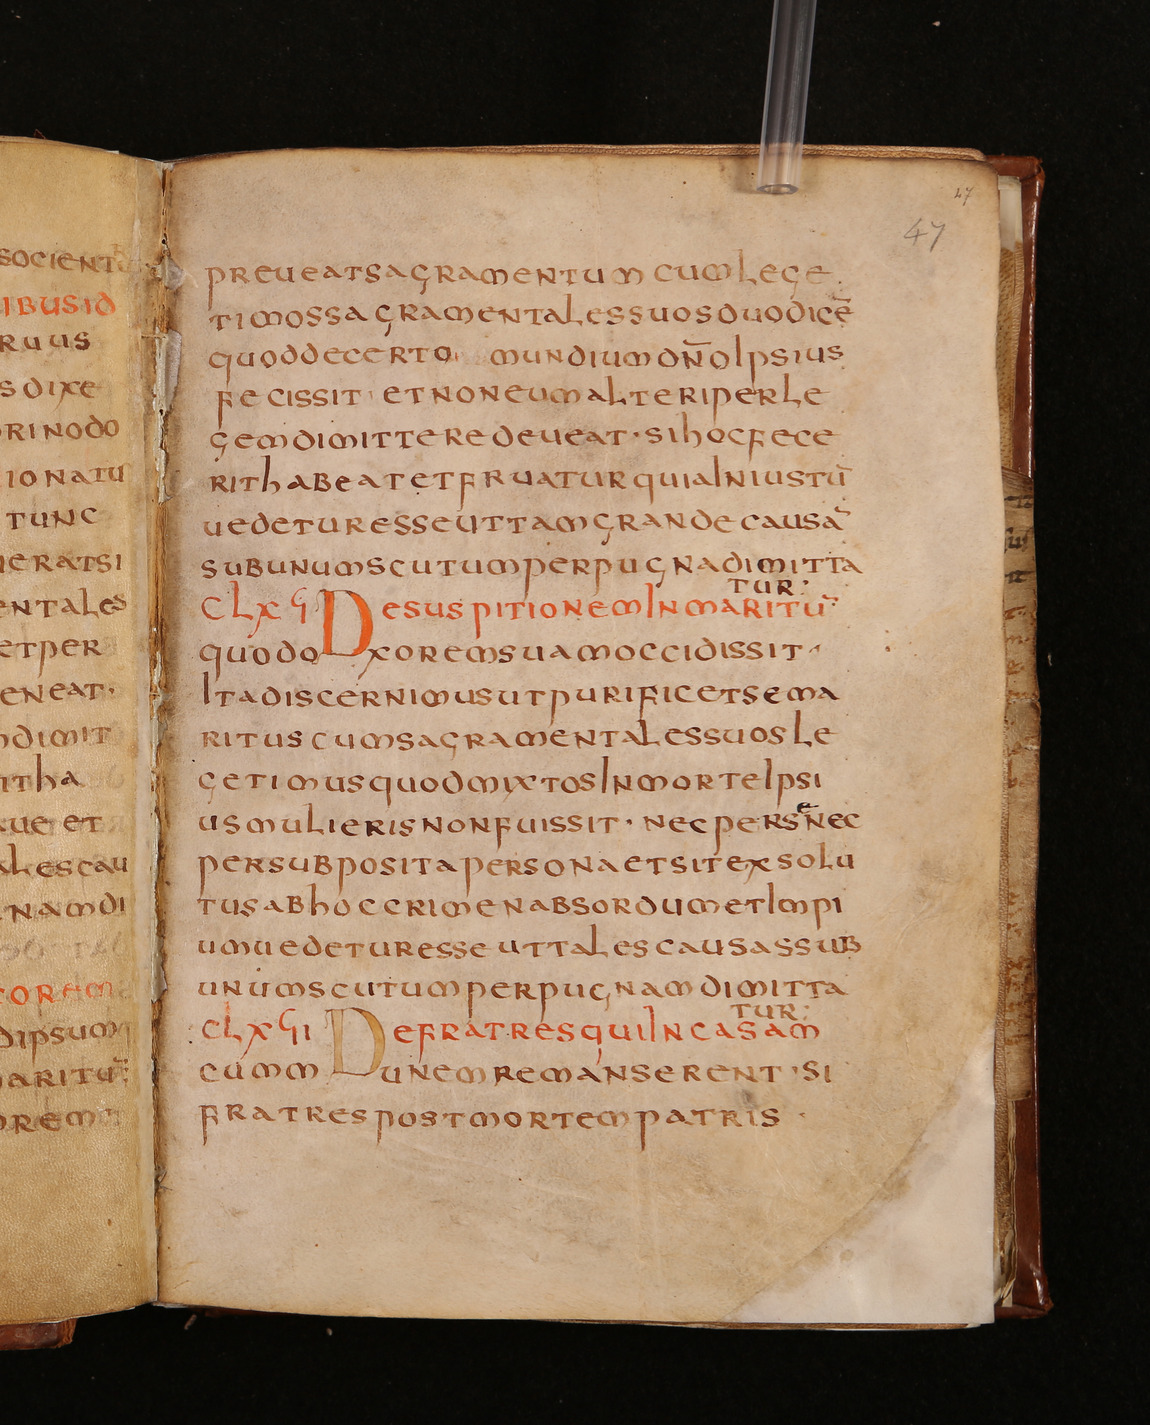 socient
ibusid
ruus
sdixe
orinodo
ionatu
tunc
ueratsi
entales
etper
eneat·
ndimit
itha
que et
alescau
namdi
orem
dipsum
maritū
orem
47
47
preueatsagramentum cumlege
timossagramentalessuosduodicē
quoddecerto mundiumdn̄oIpsius
fecissit· etnoneumalteriperle
gemdimittere deueat· sihocfece
rithabeatetfruaturquiaIniustū
uedeturesseuttamgrandecausā
subunumscutumperpugnadimitta
tur:
CLXϛ Desuspitionem Inmaritū
quodoxoremsuamoccidissit·
Itadiscernimusutpurificetsema
ritus cumsagramentalessuosle
getimusquodmixtosInmorteIpsi
usmulierisnonfuissit· necpersēnec
persubpositapersonaetsitexsolu
tusabhoccrimenabsordumetImpi
umuedeturesse uttalescausassub
unumscutumperpugnamdimitta
tur:
CLXϛI DefratresquiIncasam
cummunemremanserent· si
fratrespostmortempatris